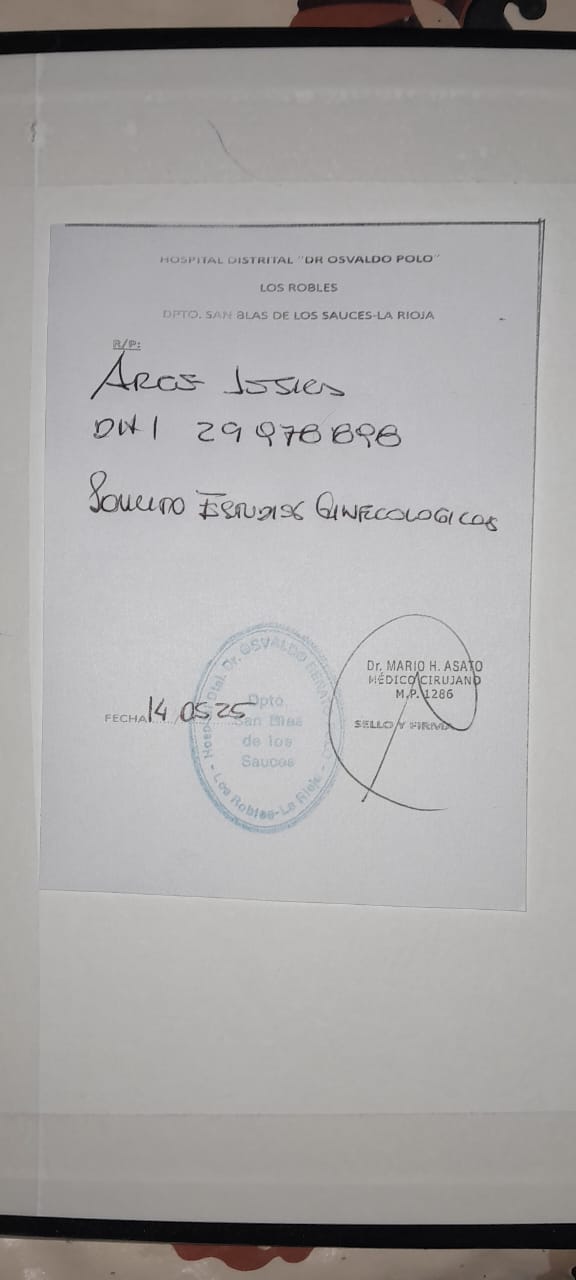 HOSPITAL DISTRITAL "DR OSVALDO POLO"
LOS ROBLES
DPTO. SAN BLAS DE LOS SAUCES-LA RIOJA
R/P:
ARCE
DNI 29 978 898
SOLICITO ESTUDIOS GINECOLOGICOS
Dr. MARIO H. ASATO
MÉDICO CIRUJANO
M.P. 1286
FECHA 14 05 25
SELLO Y FIRMA
Dr. OSVALDO
Dpto.
San Blas
de los
Sauces
Los Robles-La Rioja